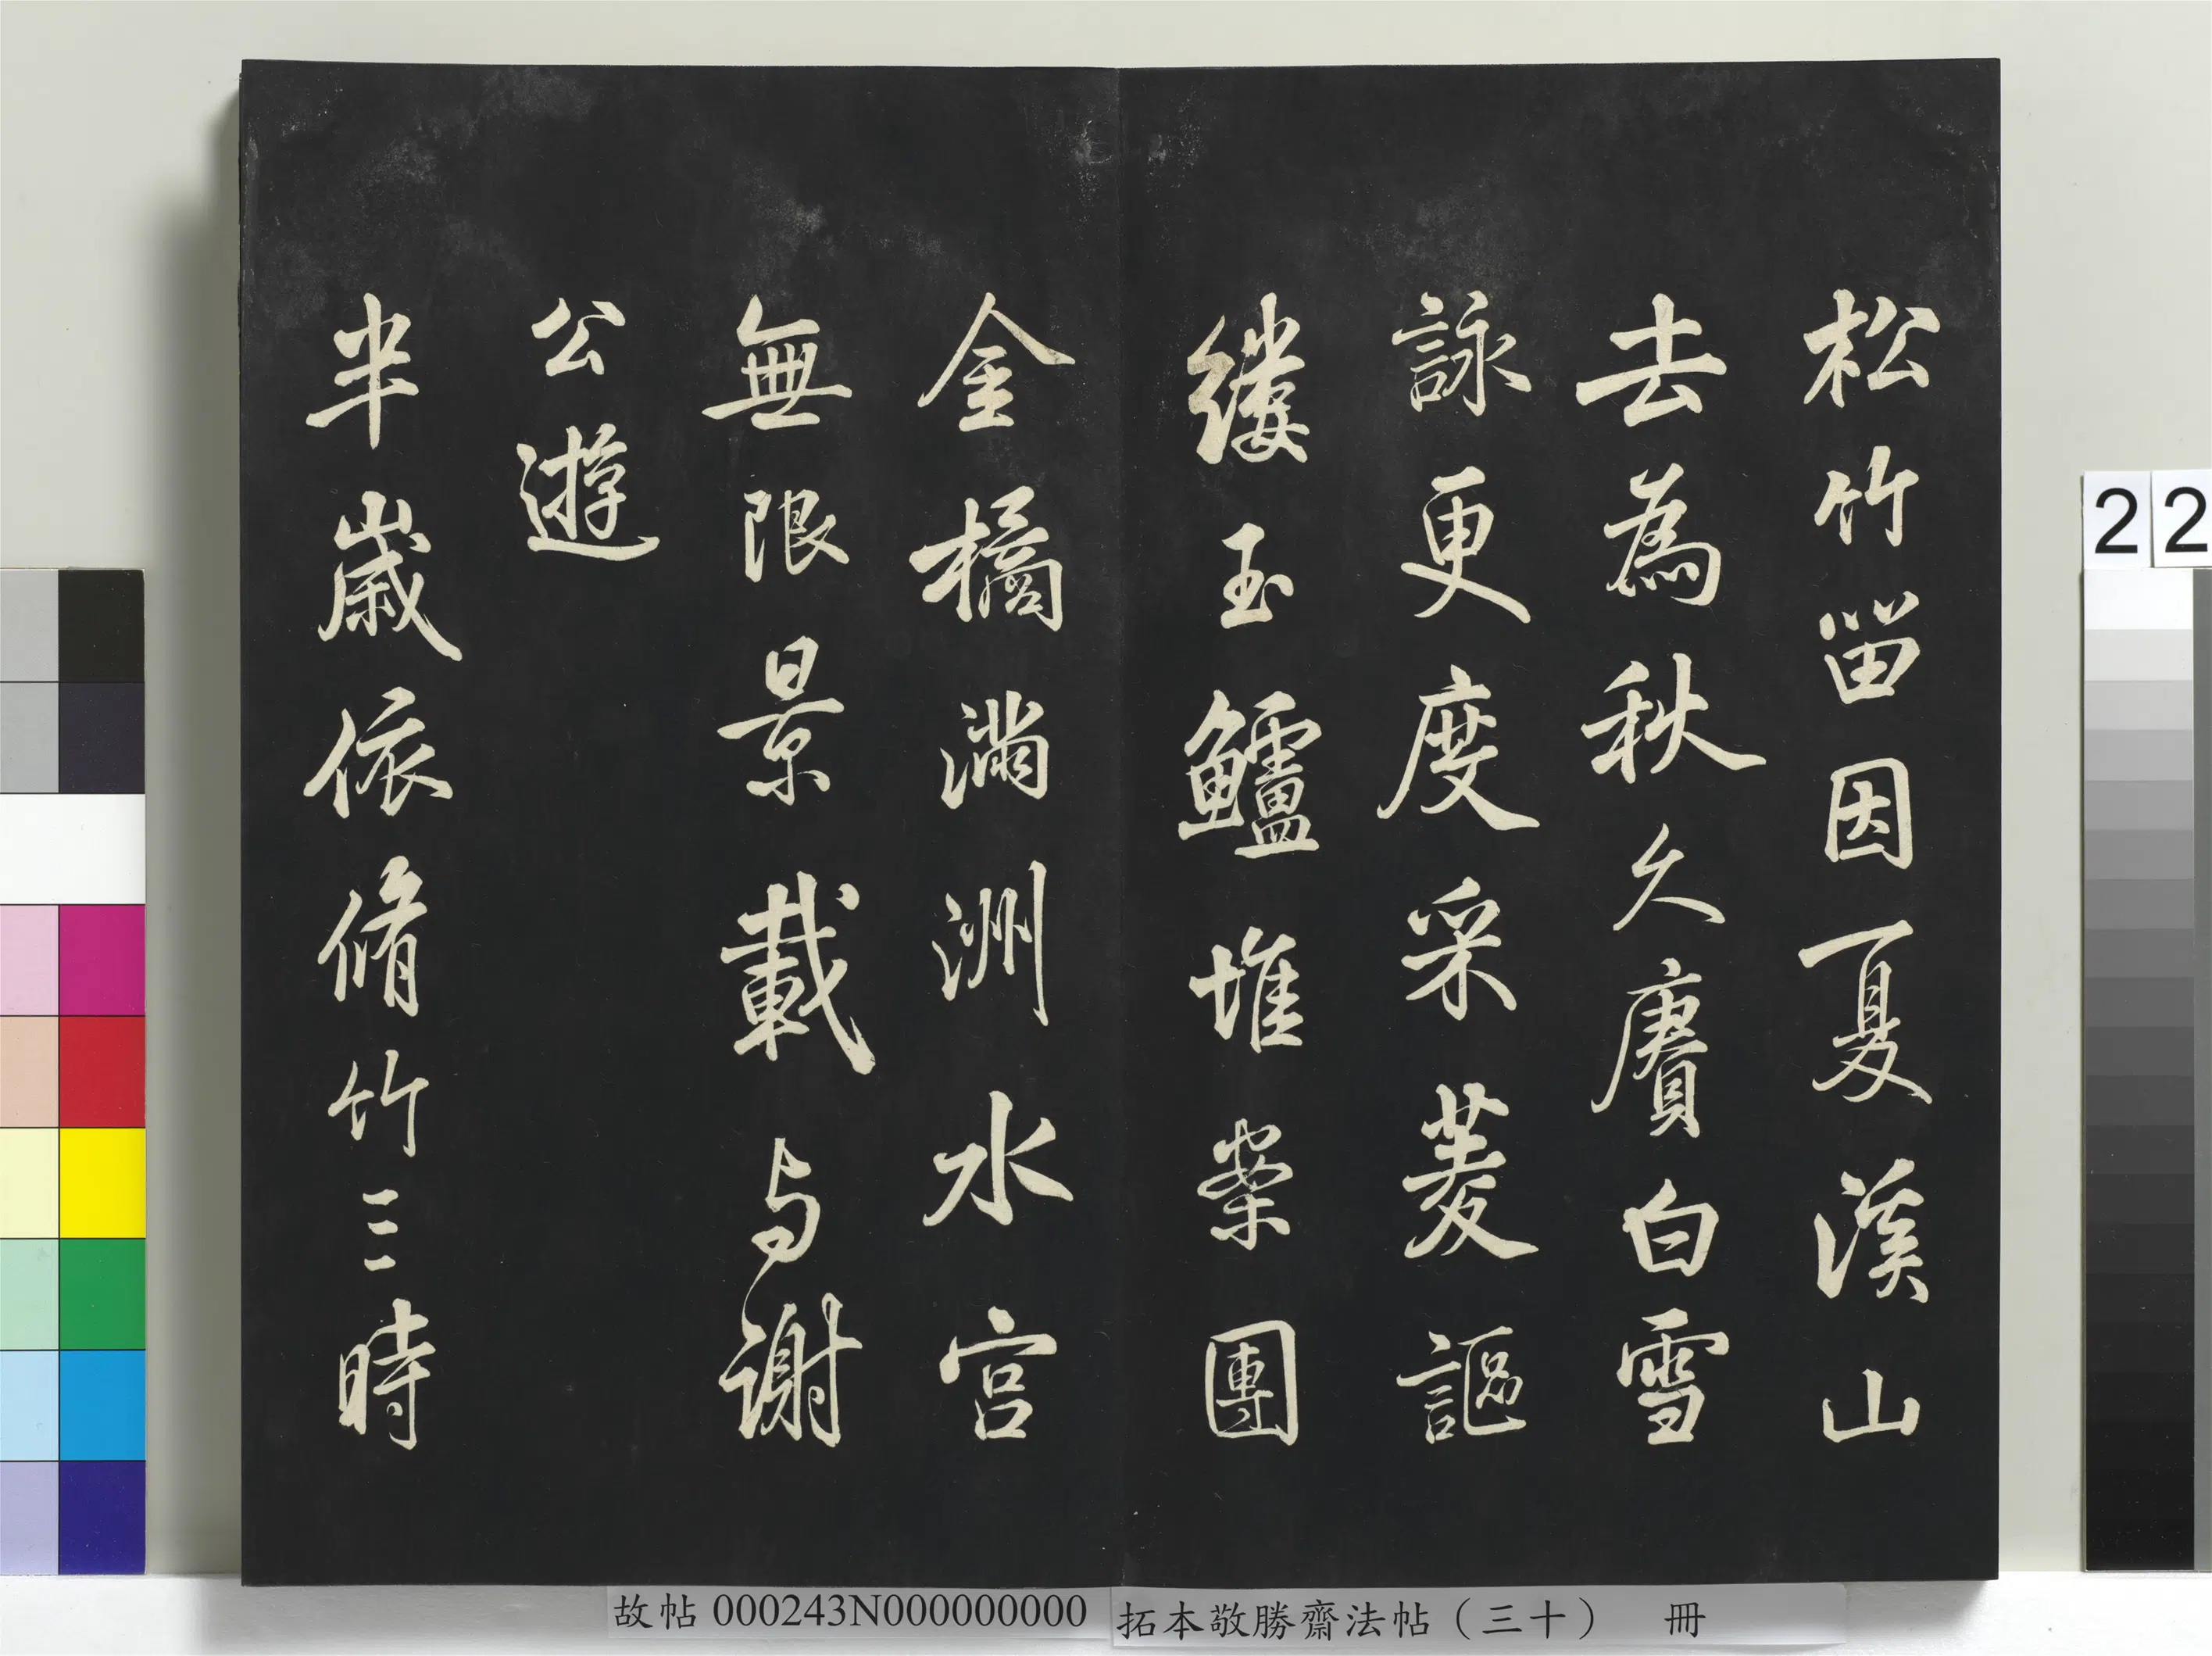 松竹留因夏溪山
去為秋久賡白雪
詠更度采菱謳
縷玉鱸堆案團
金橘滿洲水宮
無限景載与謝
公遊
半歲依脩竹三時
22
故帖 000243N000000000
拓本敬勝齋法帖（三十） 冊